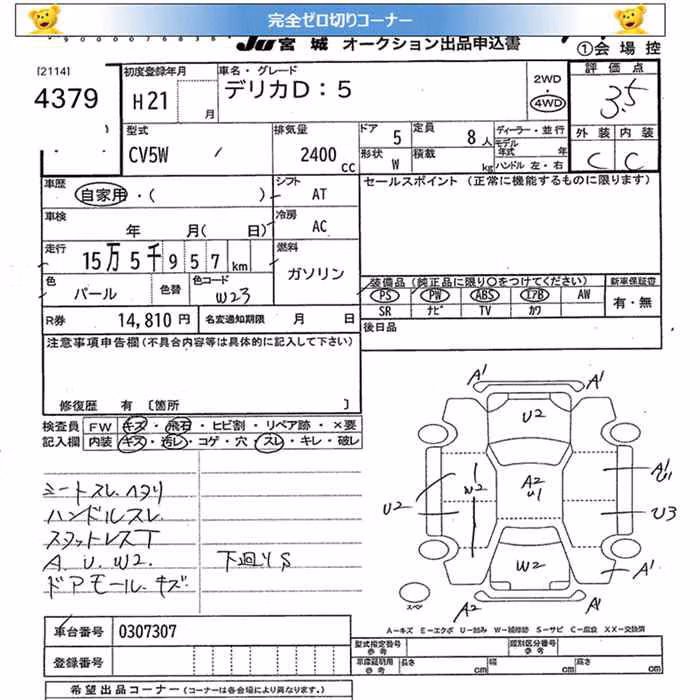 完全ゼロ切りコーナー
JU 宮城 オークション出品申込書
①会場控
[2114]
4379
初度登録年月
H21
月
車名・グレード
デリカD：5
2WD
・
4WD
評価点
3.5
外装 内装
C C
型式
CV5W
排気量
2400
cc
ドア
5
定員
8人
形状
W
積載
kg
ディーラー・並行
モデル年式 年
ハンドル 左・右
車歴
自家用・( )
シフト
AT
セールスポイント (正常に機能するものに限ります)
車検
年 月( 日)
冷房
AC
走行
15万5千957km
燃料
ガソリン
色
パール
色替
色コード
W23
装備品 (純正品に限り○をつけてください)
新車保証書
PS PW ABS エアB AW
有・無
SR ナビ TV カワ
R券
14,810円
名変通知期限 月 日
後日品
注意事項申告欄(不具合内容等は具体的に記入して下さい)
修復歴 有 〔箇所 〕
検査員
記入欄
FW キズ・飛石・ヒビ割・リペア跡・×要
内装 キズ・汚レ・コゲ・穴・スレ・キレ・破レ
シートスレ.ヘタリ
ハンドルスレ
スタットレスT
A. U. W2.
ドアモール.キズ
下廻りS
A1
A1
U2
A2
U1
W2
U2
A1
U1
U3
W2
A1
A2
A1
スペア
A－キズ E－エクボ U－凹み W－補修跡 S－サビ C－腐食 XX－交換済
車台番号
0307307
登録番号
型式指定番号
参考
類別区分番号
参考
車庫証明用
参考
長さ cm
幅 cm
高さ cm
希望出品コーナー (コーナーは各会場により異なります。)